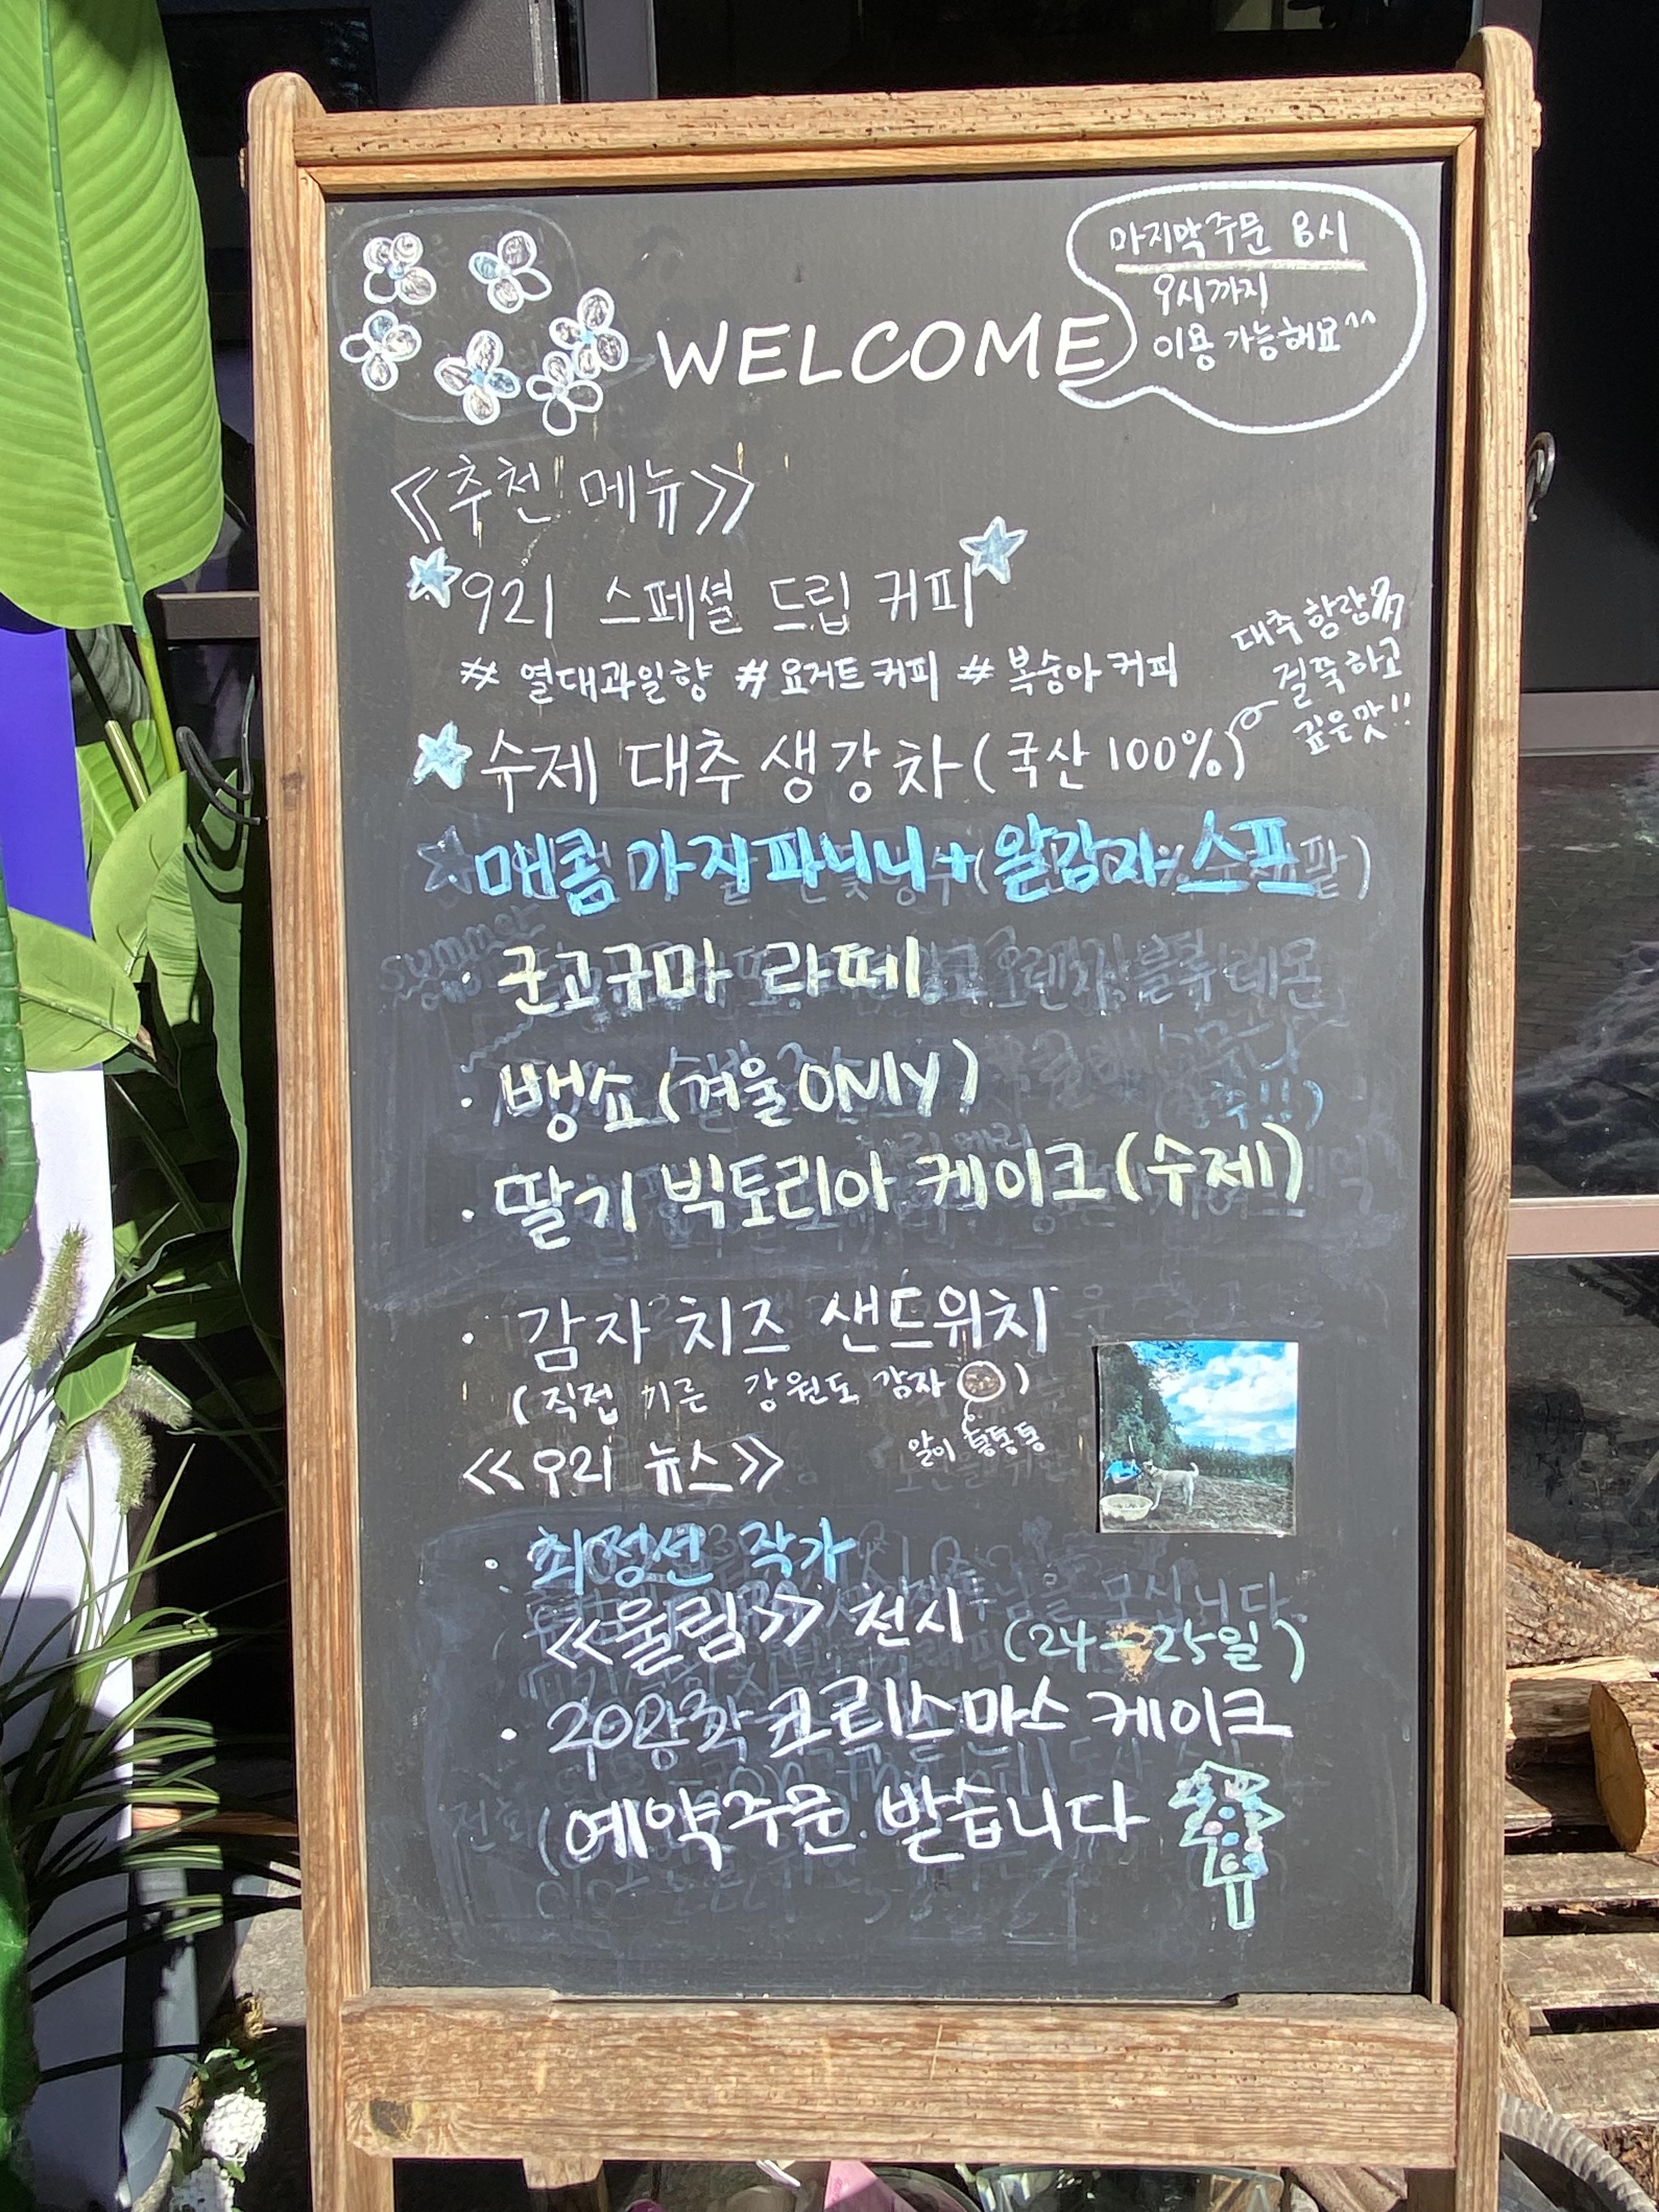 마지막 주문 8시
9시까지
이용 가능해요^^
WELCOME
《추천! 메뉴》
921 스페셜 드립 커피
# 열대과일향 # 요거트커피 # 복숭아커피
대추 함량 多
걸쭉하고
깊은맛!!
수제 대추생강차(국산 100%)
매콤 가지파니니+알감자스프
· 군고구마 라떼
· 뱅쇼(겨울ONLY)
· 딸기 빅토리아 케이크(수제)
· 감자치즈 샌드위치
(직접 기른 강원도 감자 )
알이 통통통
<<921 뉴스>>
· 최정선 작가
<<울림>> 전시 (24-25일)
· 크리스마스 케이크
예약주문 받습니다